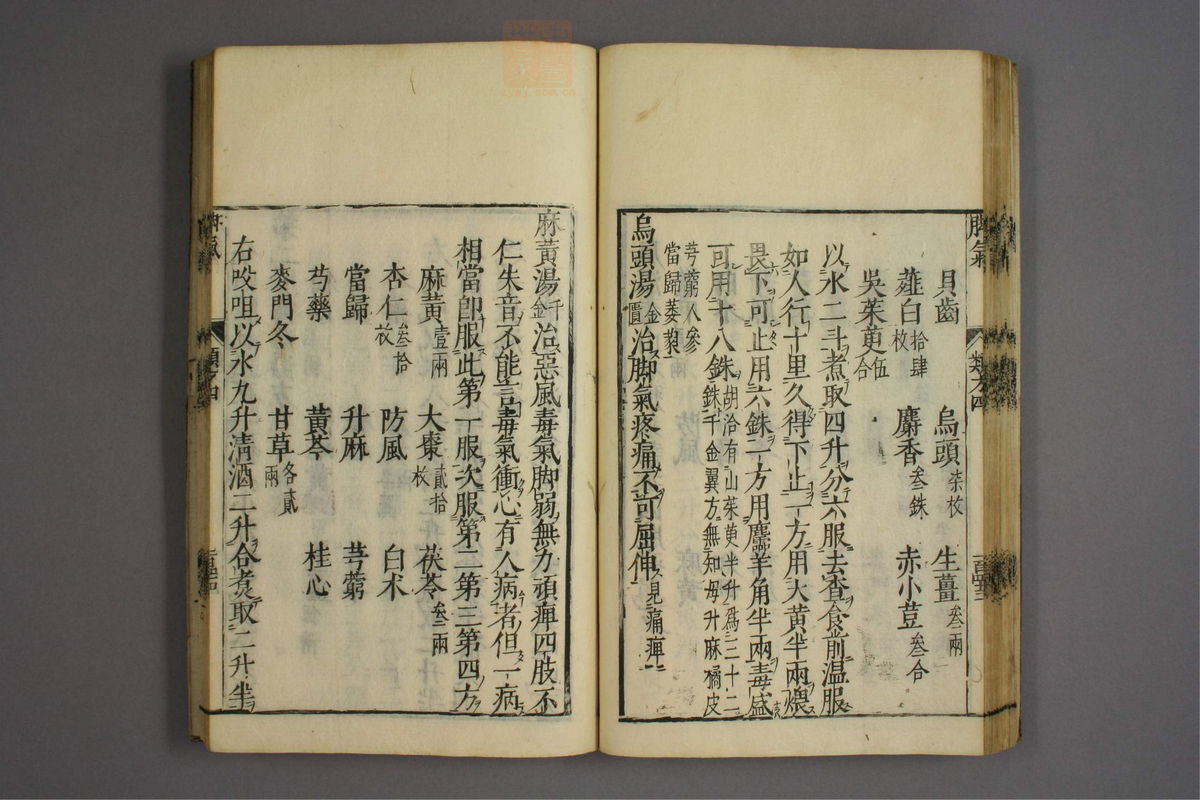 脚氣 類方四
貝齒 烏頭柒枚 生薑叁兩
薤白拾肆枚 麝香叁銖 赤小荳叁合
吳茱萸伍合
以水二斗煮取四升分六服去查食前温服
如人行十里久得下止一方用大黃半兩煨
畏下可止用六銖一方用麢羊角半兩毒盛
可用十八銖胡洽有山茱萸半升爲三十二銖千金翼方無知母升麻橘皮
芎藭人參當歸蔞藜
烏頭湯金匱治脚氣疼痛不可屈伸見痛痺
麻黃湯千金治惡風毒氣脚弱無力頑痺四肢不
仁失音不能言毒氣衝心有人病者但一病
相當即服此第一服次服第二第三第四方
麻黃壹兩 大棗貳拾枚 茯苓叁兩
杏仁叁拾枚 防風 白术
當歸 升麻 芎藭
芍藥 黃芩 桂心
麥門冬 甘草各貳兩
右㕮咀以水九升清酒二升合煮取二升半
類方四